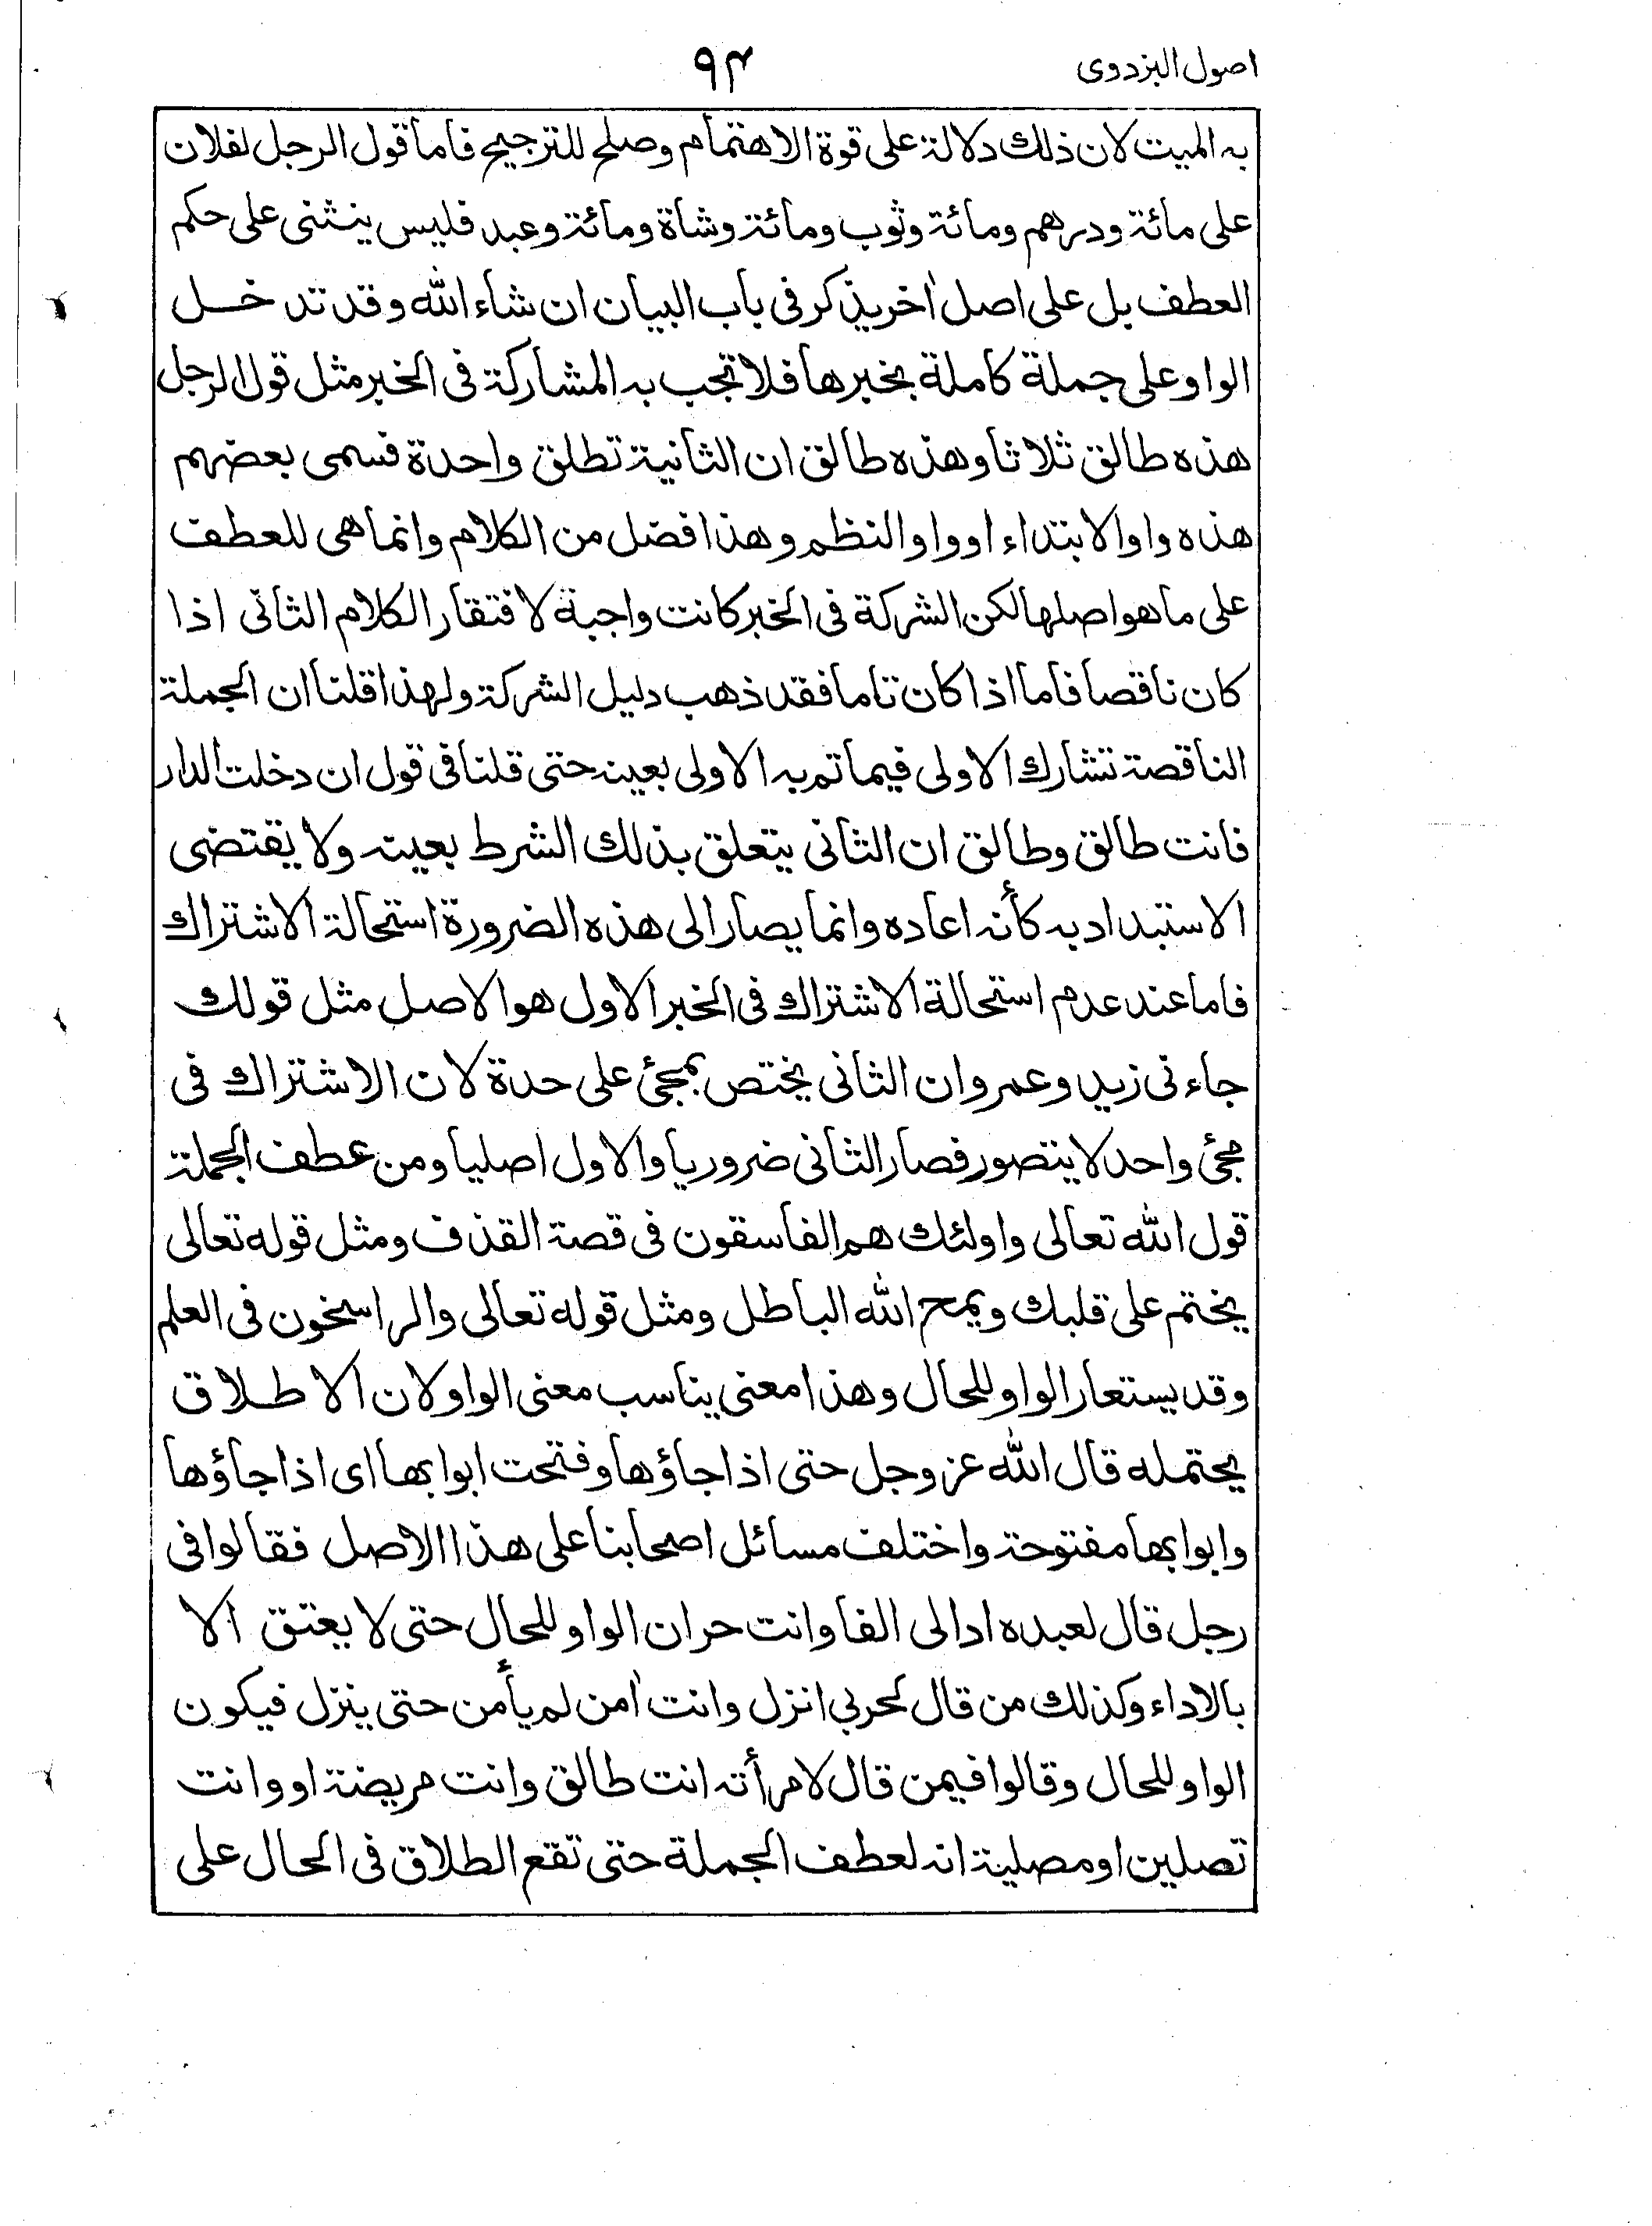 اصول البزدوى
٩٤
به الميت لان ذلك دلالة على قوة الاهتمام وصلح للترجيح فاما قول الرجل لفلان
على مائة ودرهم ومائة وثوب ومائة وشاة ومائة وعبد فليس ينثنى على حكم
العطف بل على اصل اٰخر يذكر فى باب البيان ان شاء الله وقد تدخل
الواو على جملة كاملة بخبرها فلا تجب به المشاركة فى الخبر مثل قول الرجل
هذه طالق ثلاثا وهذه طالق ان الثانية تطلق واحدة فسمى بعضهم
هذه واو الابتداء او واو النظم وهذا فضل من الكلام وانما هى للعطف
على ما هو اصلها لكن الشركة فى الخبر كانت واجبة لافتقار الكلام الثانى اذا
كان ناقصا فاما اذا كان تاما فقد ذهب دليل الشركة ولهذا قلنا ان الجملة
الناقصة تشارك الاولى فيما تم به الاولى بعينه حتى قلنا فى قول ان دخلت الدار
فانت طالق وطالق ان الثانى يتعلق بذلك الشرط بعينه ولا يقتضى
الاستبداد به كأنه اعاده وانما يصار الى هذه الضرورة استحالة الاشتراك
فاما عند عدم استحالة الاشتراك فى الخبر الاول هو الاصل مثل قولك
جاءنى زيد وعمرو ان الثانى يختص بمجئ على حدة لان الاشتراك فى
مجئ واحد لا يتصور فصار الثانى ضروريا والاول اصليا ومن عطف الجملة
قول الله تعالى واولئك هم الفاسقون فى قصة القذف ومثل قوله تعالى
يختم على قلبك ويمح الله الباطل ومثل قوله تعالى والراسخون فى العلم
وقد يستعار الواو للحال وهذا معنى يناسب معنى الواو لان الاطلاق
يحتمله قال الله عز وجل حتى اذا جاؤها وفتحت ابوابها اى اذا جاؤها
وابوابها مفتوحة واختلف مسائل اصحابنا على هذا الاصل فقالوا فى
رجل قال لعبده اد الى الفا وانت حر ان الواو للحال حتى لا يعتق الا
بالاداء وكذلك من قال لحربي انزل وانت اٰمن لم يأمن حتى ينزل فيكون
الواو للحال وقالوا فيمن قال لامرأته انت طالق وانت مريضة او وانت
تصلين او مصلية انه لعطف الجملة حتى تقع الطلاق فى الحال على